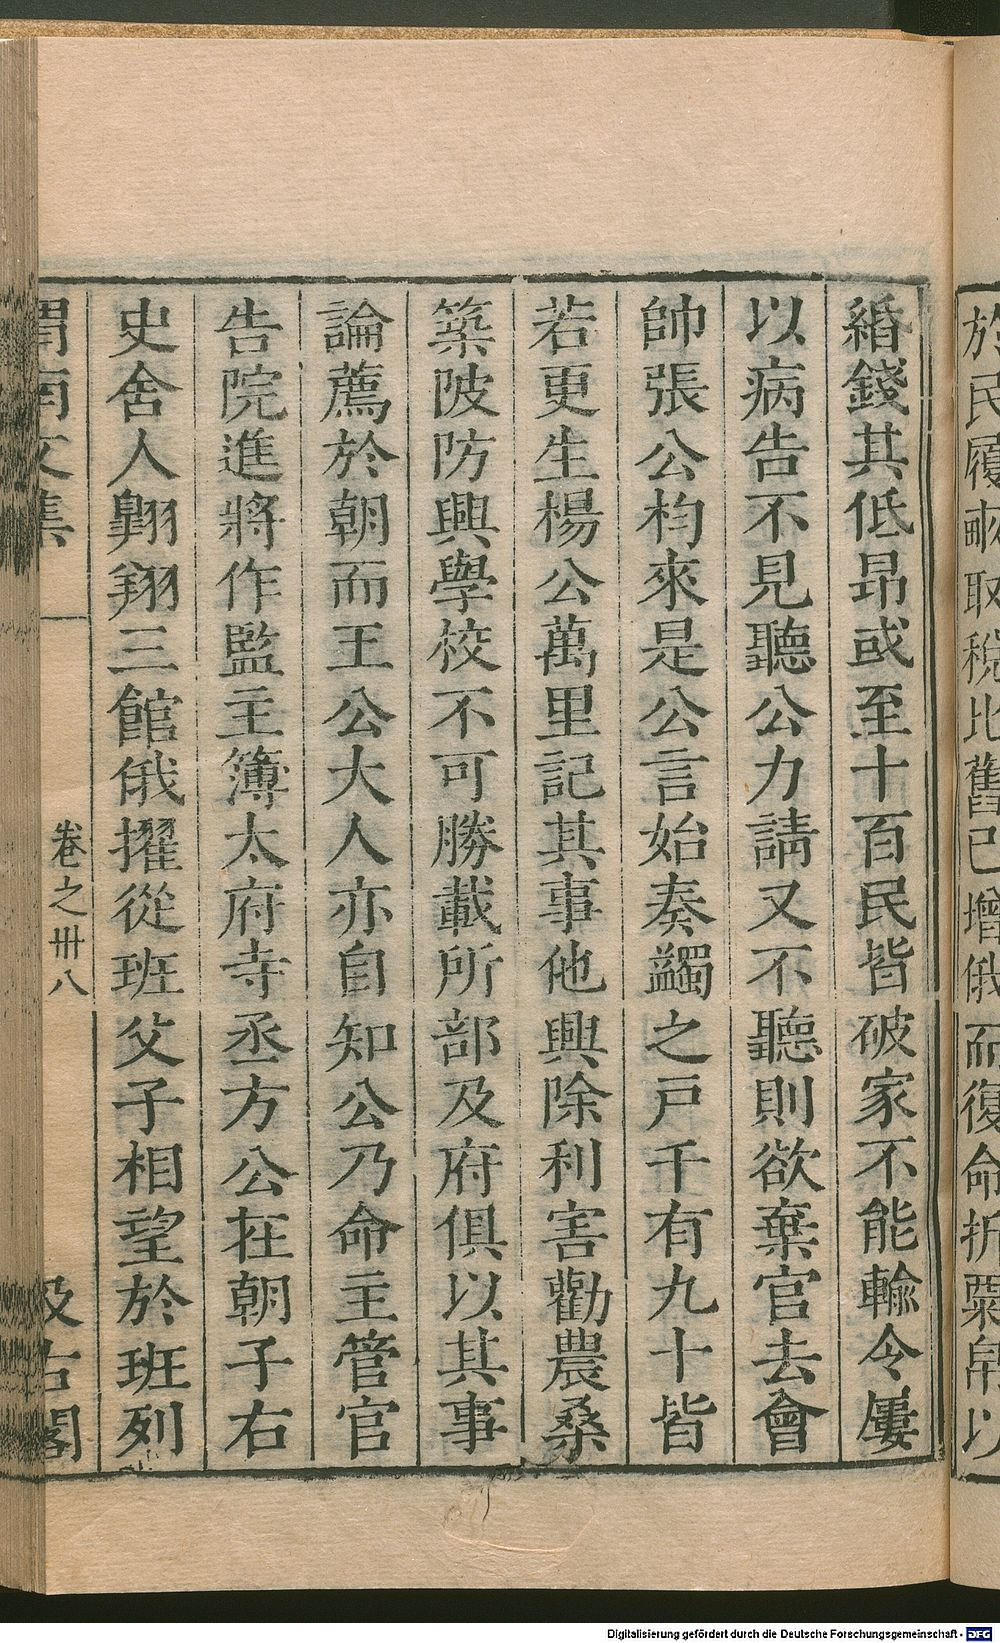 於民履畝取稅比舊已增俄而復命折粟帛以
緡錢其低昂或至十百民皆破家不能輸令屢
以病告不見聽公力請又不聽則欲棄官去會
帥張公枃來是公言始奏蠲之戸千有九十皆
若更生楊公萬里記其事他興除利害勸農桑
築陂防興學校不可勝載所部及府俱以其事
論薦於朝而王公大人亦自知公乃命主管官
告院進將作監主簿太府寺丞方公在朝子右
史舍人翺翔三館俄擢從班父子相望於班列
渭南文集
卷之卅八
汲古閣
Digitalisierung gefördert durch die Deutsche Forschungsgemeinschaft - DFG